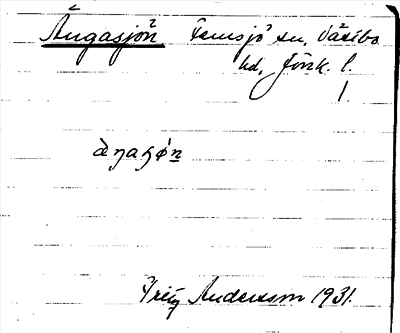 Ängasjön Femsjö sn, Västbo
hd, Jönk. l.
1.
àŋaɧø̀n
Fritz Andersson 1931.